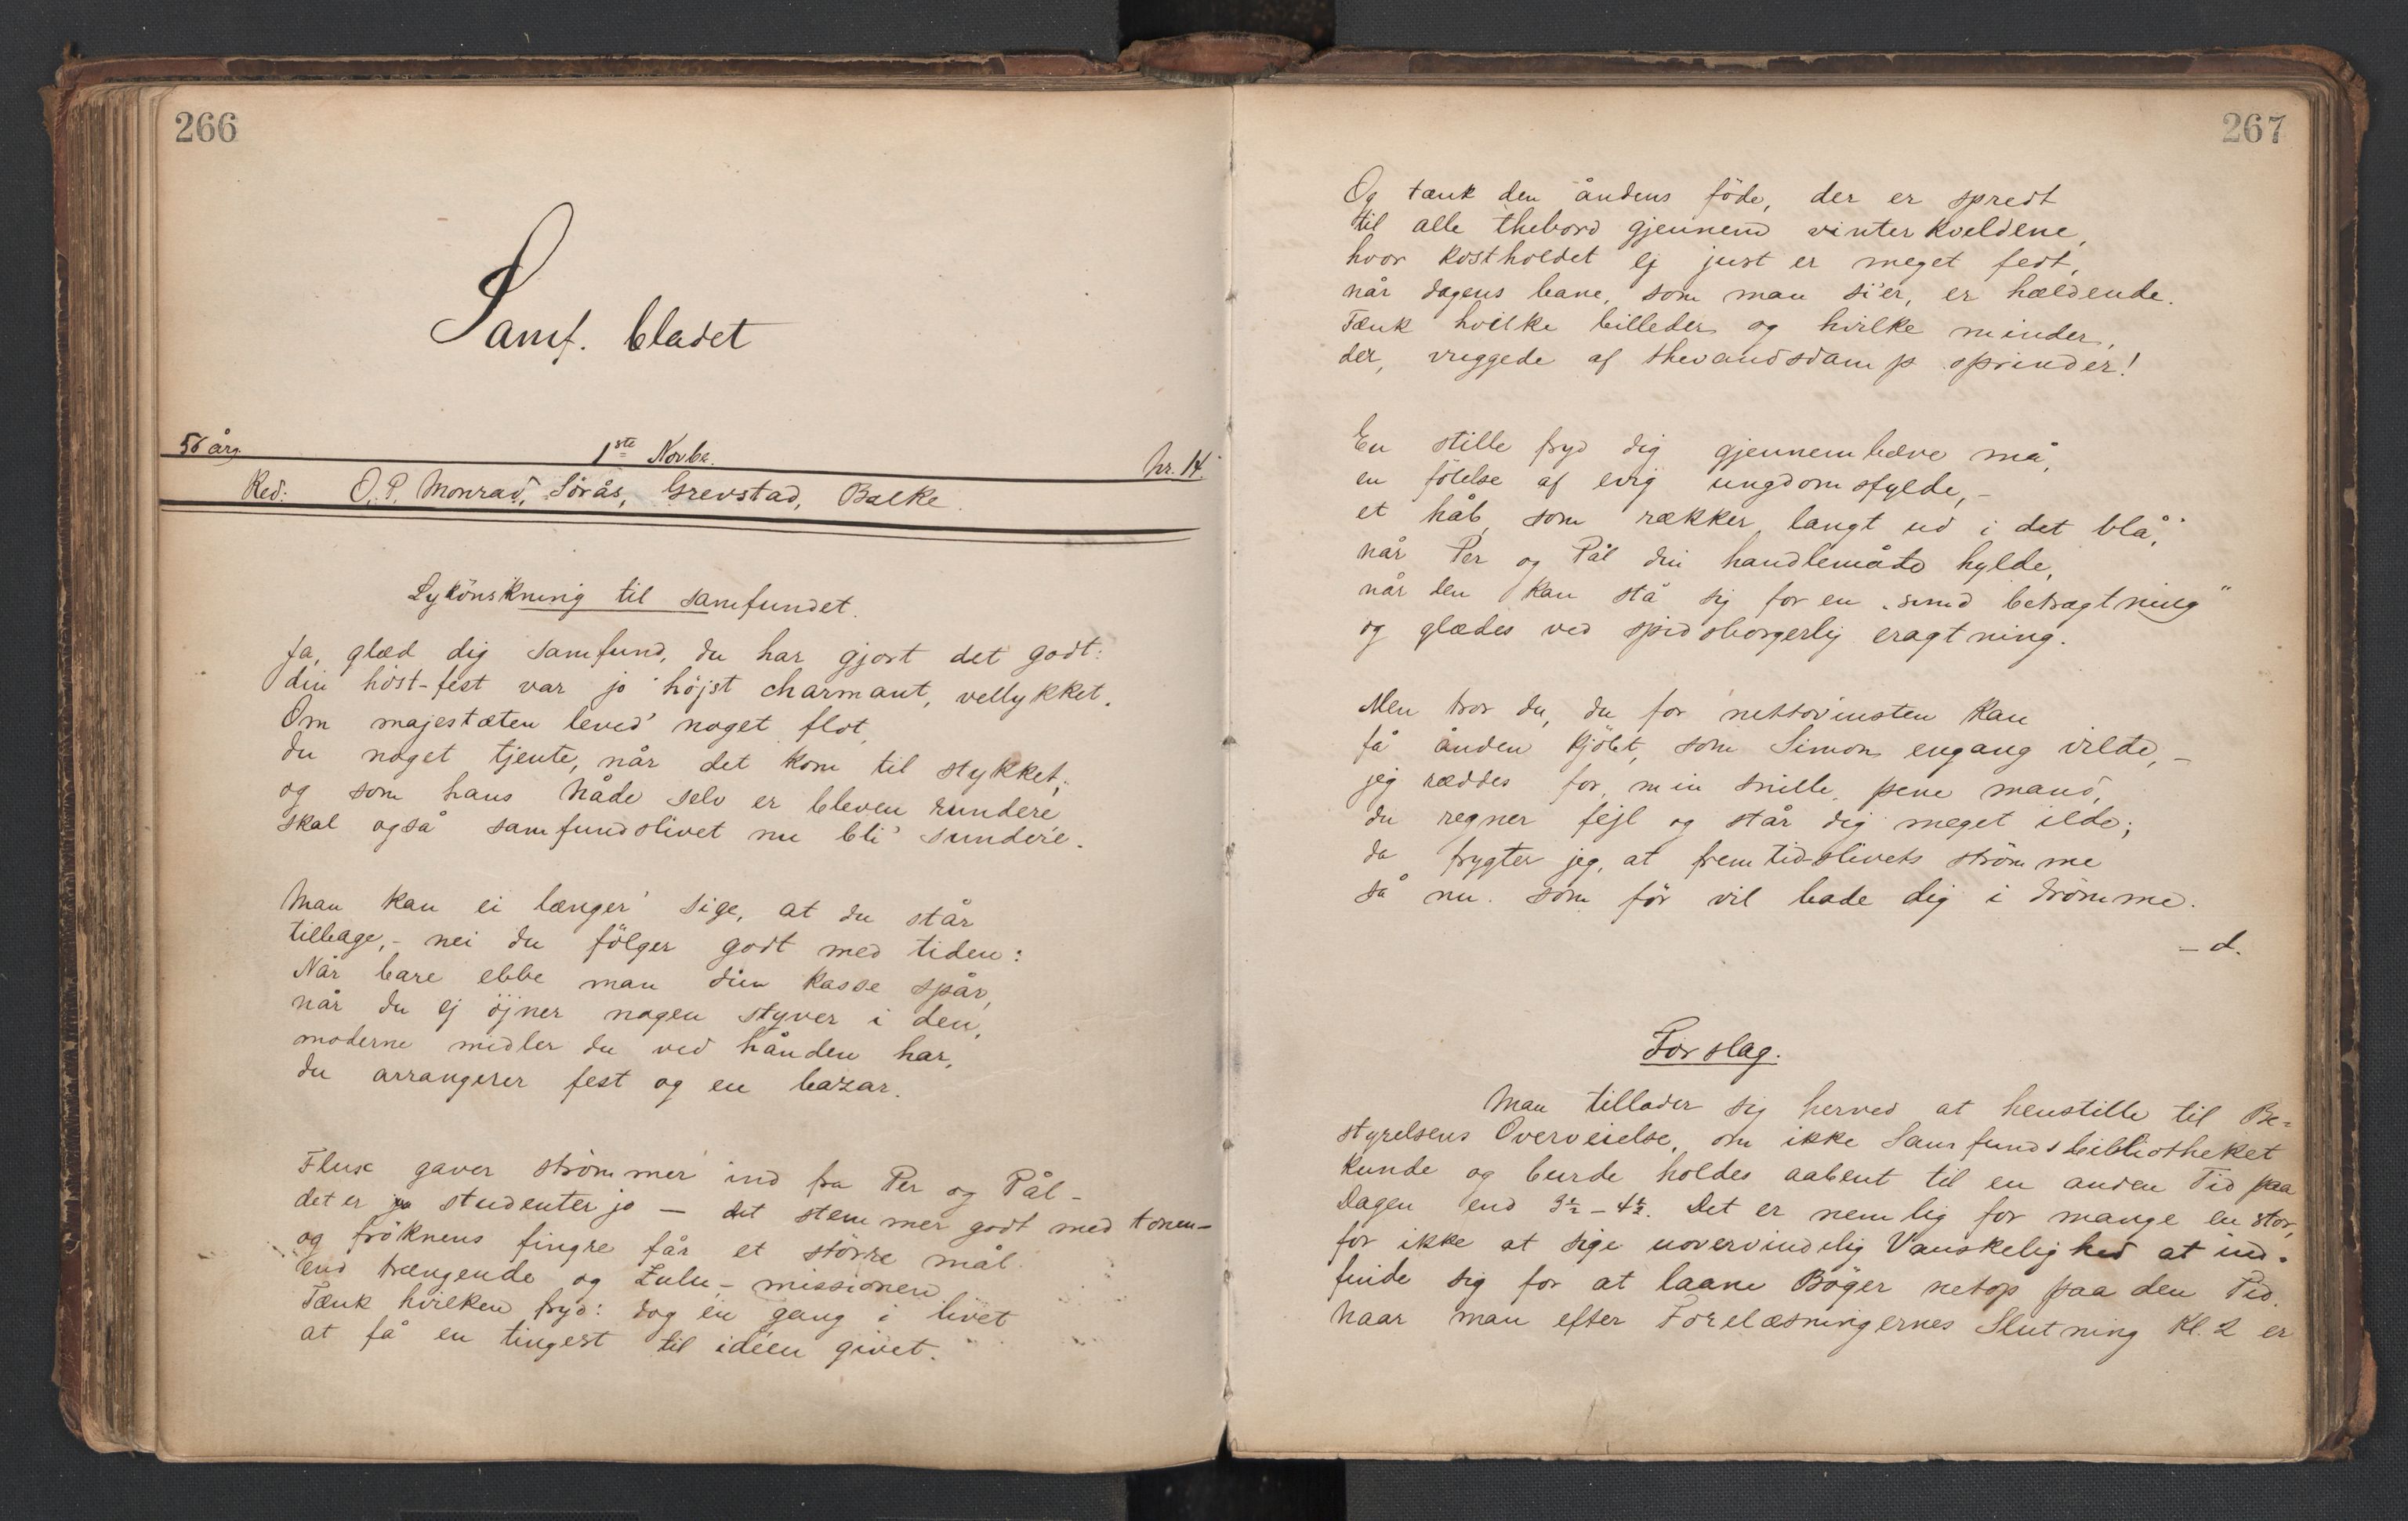 266
Samf. bladet
56 årg. 1ste Novbr. Nr. 14.
Red: O. P. Monrad, Sörås, Grevstad, Balke.
Lykönskning til samfundet.
Ja, glæd dig samfund, du har gjort det godt:
din höst-fest var jo höjst charmant, vellykket.
Om majestæten leved' noget flot,
du noget tjente, når det kom til stykket;
og som hans Nåde selv er bleven rundere
skal også samfundslivet nu bli' sundere.
Man kan ei længer' sige, at du står
tilbage, - nei du fölger godt med tiden:
Når bare ebbe man din kasse spår,
når du ej öjner nogen styver i den,
moderne midler du ved hånden har,
du arrangerer fest og en bazar.
Flux gaver strömmer ind fra Per og Pål -
det er studenter jo - det stemmer godt med tonen -
og fröknens fingre får et större mål
end trængende og Zulu-missionen
Tænk hvilken fryd: dog én gang i livet
at få en tingest til idéen givet.
267
Og tænk den åndens föde, der er spredt
til alle thebord gjennem vinterkveldene,
hvor kostholdet ej just er meget fedt,
når dagens bane, som man si'er, er hældende.
Tænk hvilke billeder og hvilke minder,
der, vuggede af thevandsdamp oprinder!
En stille fryd dig gjennembæve må,
en fölelse af evig ungdomsfylde, -
et håb, som rækker langt ud i det blå,
når Per og Pål din handlemåde hylde,
når den kan stå sig for en "sund betragtning"
og glædes ved spidsborgerlig eragtning.
Men tror du, du for nettovinsten kan
få ånden kjöbt, som Simon engang vilde, -
jeg ræddes for, min snille, pene mand,
du regner fejl og står dig meget ilde;
da frygter jeg, at fremtidslivets strömme
så nu som för vil bade dig i drömme.
- d.
Forslag.
Man tillader sig herved at henstille til Be-
styrelsens Overveielse, om ikke Samfundsbibliotheket
kunde og burde holdes aabent til en anden Tid paa
Dagen end 3½ - 4½. Det er nemlig for mange en stor,
for ikke at sige uovervindelig Vanskelighed at ind-
finde sig for at laane Böger netop paa den Tid.
Naar man efter Forelæsningernes Slutning Kl. 2 er